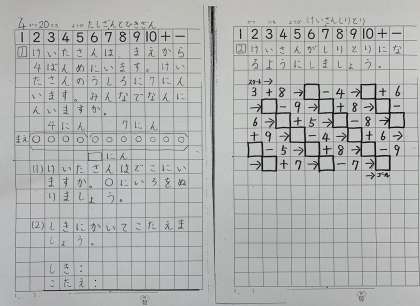 4がつ20にち たしざんとひきざん
1 2 3 4 5 6 7 8 9 10 + −
1 けいたさんは まえから
4ばんめにいます。けい
たさんのうしろに7にん
います。みんなでなんに
んいますか。
4にん 7にん
まえ ○○○○○○○○○○○
□にん
(1) けいたさんはどこにい
ますか。○にいろをぬ
りましょう。
(2) しきにかいてこたえま
しょう。
しき:
こたえ:
(けいさんしりとり)
1 2 3 4 5 6 7 8 9 10 + −
2 けいさんがしりとりにな
るようにしましょう。
スタート→
3 + 8 → □ − 4 → □ + 6
→ □ − 9 → □ + 8 → □
6 → □ + 5 → □ − 8 → □
+ 9 → □ − 4 → □ + 6 →
□ − 5 → □ + 8 → □ − 9
→ □ + 7 → □ − 7 → □
→ゴール